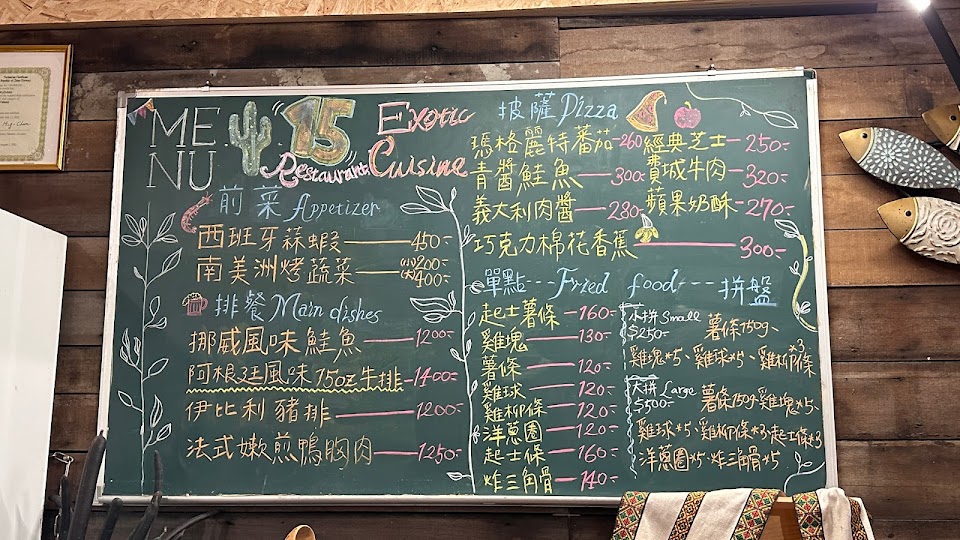 MENU
15
Restaurant
Exotic
Cuisine
前菜 Appetizer
西班牙蒜蝦 450.-
南美洲烤蔬菜 (小)200.- (大)400.-
排餐 Main dishes
挪威風味鮭魚 1200.-
阿根廷風味15oz牛排 1400.-
伊比利豬排 1200.-
法式嫩煎鴨胸肉 1250.-
披薩 Pizza
瑪格麗特蕃茄 260
青醬鮭魚 300.-
義大利肉醬 280.-
巧克力棉花香蕉 300.-
經典芝士 250.-
費城牛肉 320.-
蘋果奶酥 270.-
單點---Fried food---拼盤
起士薯條 160.-
雞塊 130.-
薯條 120.-
雞球 120.-
雞柳條 120.-
洋蔥圈 120.-
起士條 160.-
炸三角骨 140.-
小拼 Small $250.- 薯條150g、
雞塊*5、雞球*5、雞柳條*3.
大拼 Large $500.- 薯條150g、雞塊*5、
雞球*5、雞柳條*3、起士條*3
洋蔥圈*5、炸三角骨*5、